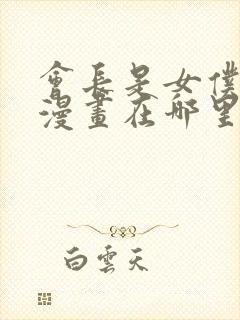 會長是女僕
漫畫在哪里
白雲天